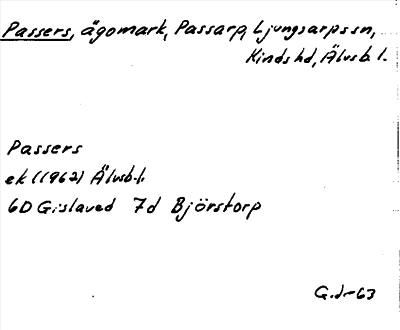 Passers, ägomark, Passarp, Ljungsarps sn,
Kinds hd, Älvsb. l.
Passers
ek (1962) Älvsb. l.
6D Gislaved 7d Björstorp
G.J-63